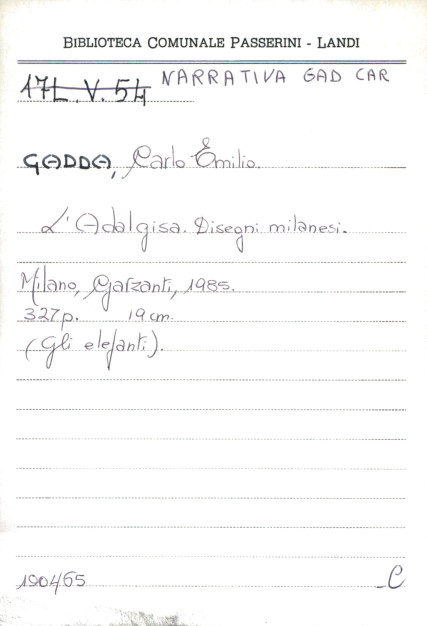 BIBLIOTECA COMUNALE PASSERINI - LANDI
17L.V.54 NARRATIVA GAD CAR
GADDA, Carlo Emilio.
L'Adalgisa. Disegni milanesi.
Milano, Garzanti, 1985.
327p. 19cm.
(Gli elefanti).
190465 C